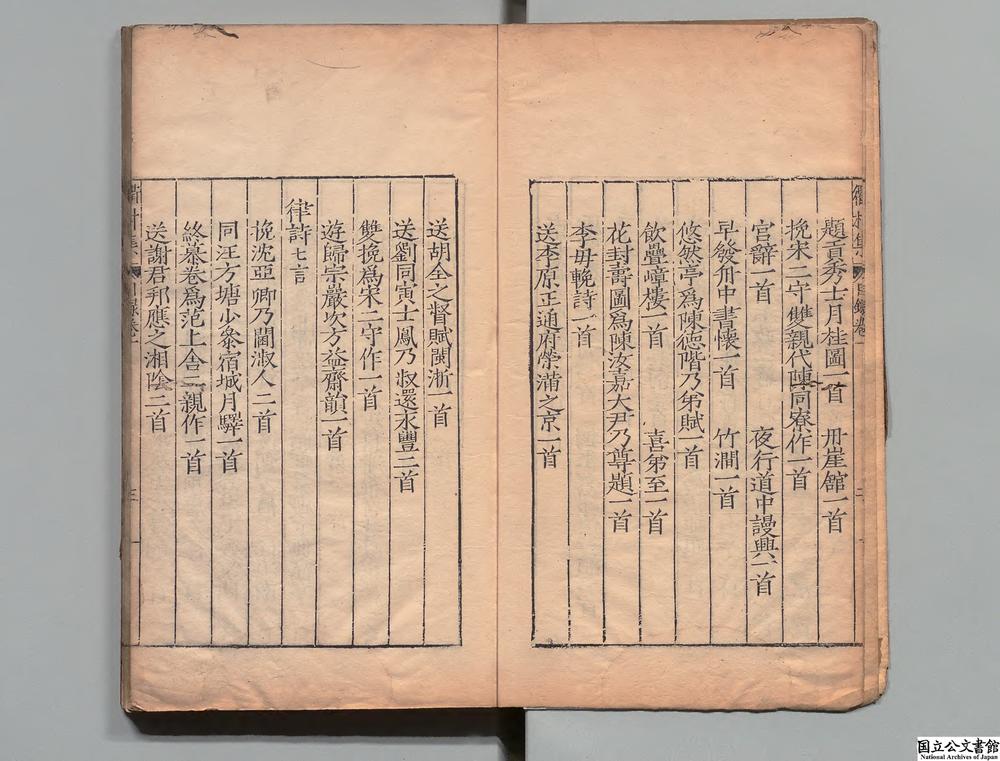 題貢秀士月桂圖一首　冊崖館一首
挽宋二守雙親代陳同寮作一首
宮辭一首　夜行道中謾興一首
早發舟中書懷一首　竹澗一首
悠然亭爲陳德階乃弟賦一首
飲疊嶂樓一首　喜弟至一首
花封壽圖爲陳汝嘉大尹乃尊題一首
李母輓詩一首
送李原正通府榮滿之京一首
送胡全之督賦閩浙一首
送劉同寅士鳳乃叔還永豐二首
雙挽爲宋二守作一首
遊歸宗嚴次方益齋韻一首
律詩七言
挽沈亞卿乃閫淑人二首
同汪方塘少叅宿城月驛一首
終慕卷爲范上舍二親作一首
送謝君邦應之湘陰二首
目錄卷一
三
国立公文書館
National Archives of Japan